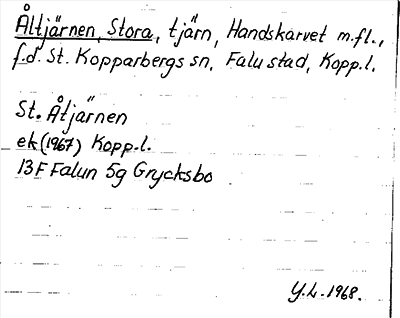 Åltjärnen, Stora, tjärn, Handskarvet m.fl.,
f.d. St. Kopparbergs sn, Falu stad, Kopp.l.
St. Åtjärnen
ek (1967) Kopp.l.
13F Falun 5g Grycksbo
Y.L. 1968.